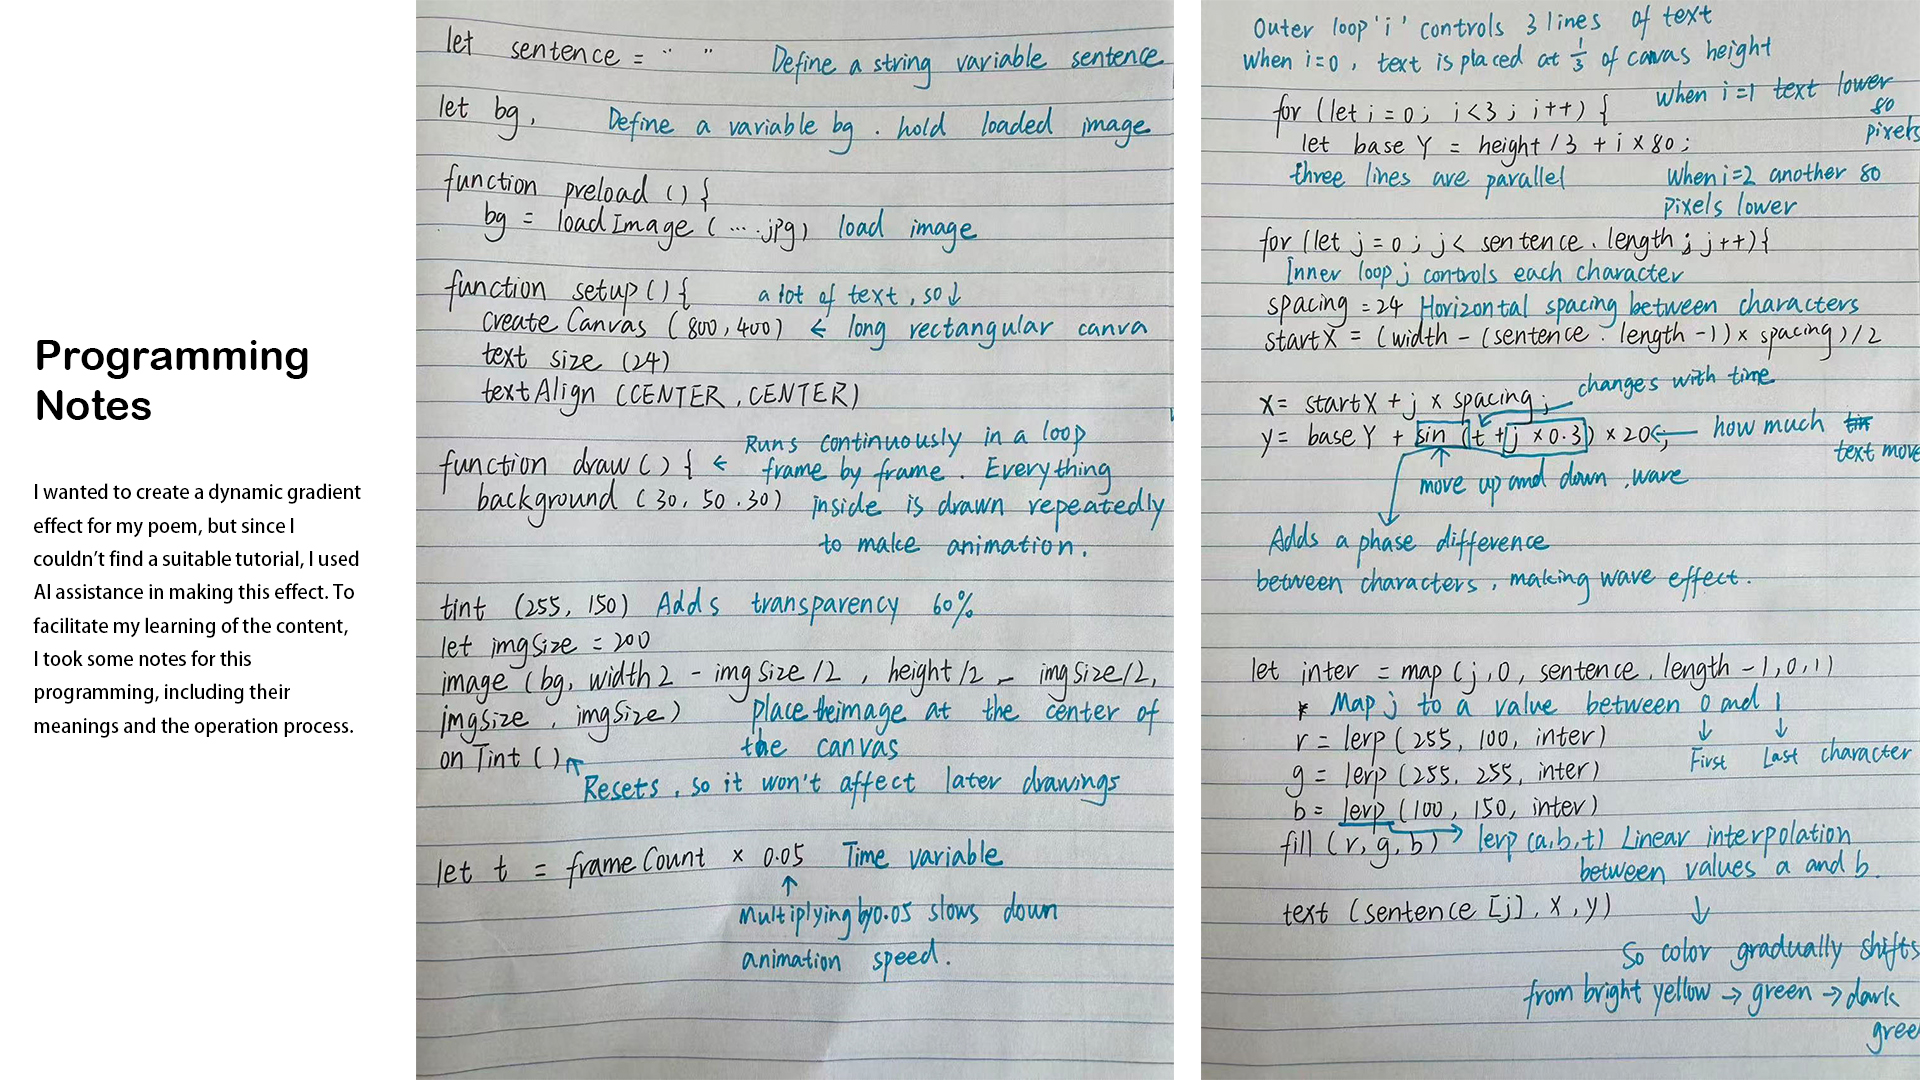 Programming
Notes
I wanted to create a dynamic gradient
effect for my poem, but since I
couldn't find a suitable tutorial, I used
AI assistance in making this effect. To
facilitate my learning of the content,
I took some notes for this
programming, including their
meanings and the operation process.
let sentence = " " Define a string variable sentence
let bg, Define a variable bg . hold loaded image
function preload () {
bg = loadImage ( ... .jpg) load image
function setup () { a lot of text, so ↓
create Canvas (800, 400) ← long rectangular canva
text size (24)
text Align (CENTER, CENTER)
function draw () { ← Runs continuously in a loop
frame by frame. Everything
background (30, 50 . 30) inside is drawn repeatedly
to make animation.
tint (255, 150) Adds transparency 60%
let imgSize = 200
image (bg, width 2 - img Size /2, height /2 - img Size/2,
imgSize, imgSize) place the image at the center of
the canvas
on Tint ()
Resets, so it won't affect later drawings
let t = frame Count × 0.05 Time variable
↑
Multiplying by 0.05 slows down
animation speed.
Outer loop 'i' controls 3 lines of text
When i=0, text is placed at 1/3 of canvas height
for (let i = 0; i<3; i++) { When i=1 text lower
80
pixels
let base Y = height / 3 + i × 80;
three lines are parallel When i=2 another 80
pixels lower
for (let j = 0; j< sentence. length; j++) {
Inner loop j controls each character
spacing = 24 Horizontal spacing between characters
startX = (width - (sentence. length -1) × spacing) / 2
changes with time
x= startX + j × spacing;
y= base Y + sin (t + j × 0.3) × 20; ← how much
text move
move up and down, wave
Adds a phase difference
between characters, making wave effect.
let inter = map (j, 0, sentence. length -1, 0, 1)
* Map j to a value between 0 and 1
r = lerp (255, 100, inter) ↓ ↓
First Last character
g = lerp (255, 255, inter)
b = lerp (100, 150, inter)
fill (r, g, b) → lerp (a,b,t) Linear interpolation
between values a and b.
text (sentence [j], x, y) ↓
So color gradually shifts
from bright yellow → green → dark
gree